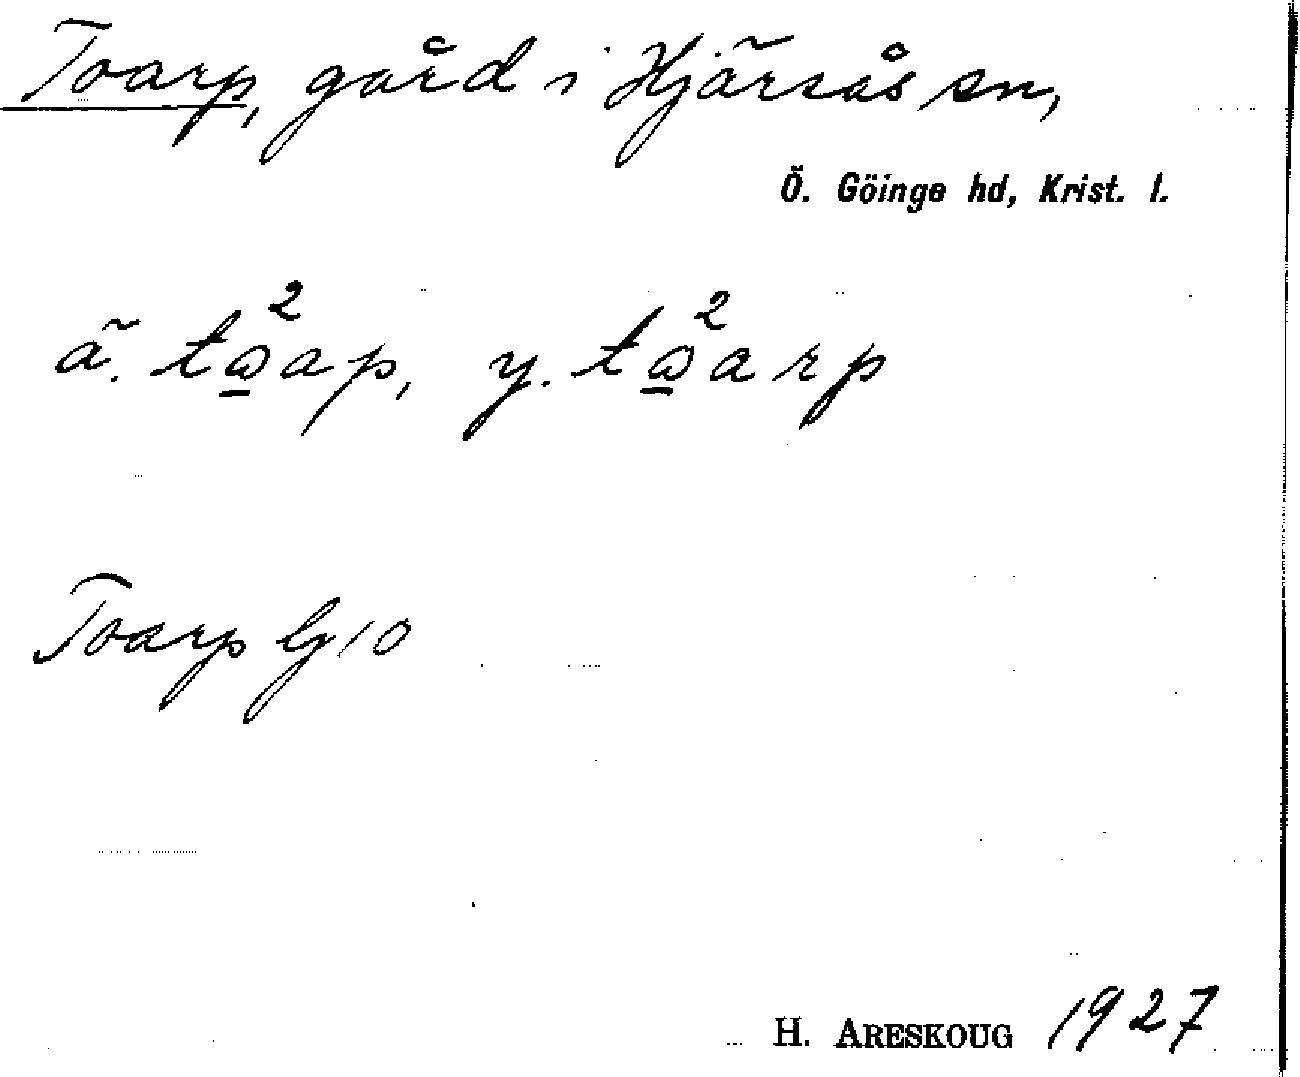 Toarp, gård i Hjärsås sn,
Ö. Göinge hd, Krist. l.
ä. tω̱²ap, y. tω̱²arp
Toarp G10
H. ARESKOUG 1927